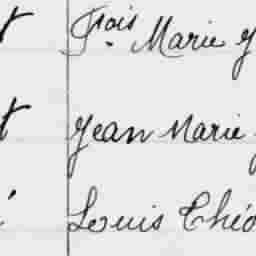 t fr.ois Marie J
t Jean Marie
é Louis Théo